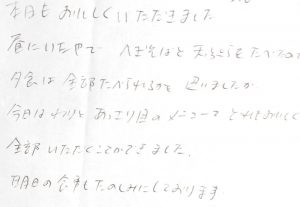 本日も おいしくいただきました
昼にいただいて
夕食は 全部たべれるかと 思いましたが
今日はわりと あっさり目の メニューで とてもおいしく
全部 いただくことができました。
明日の食事したのしみにしております